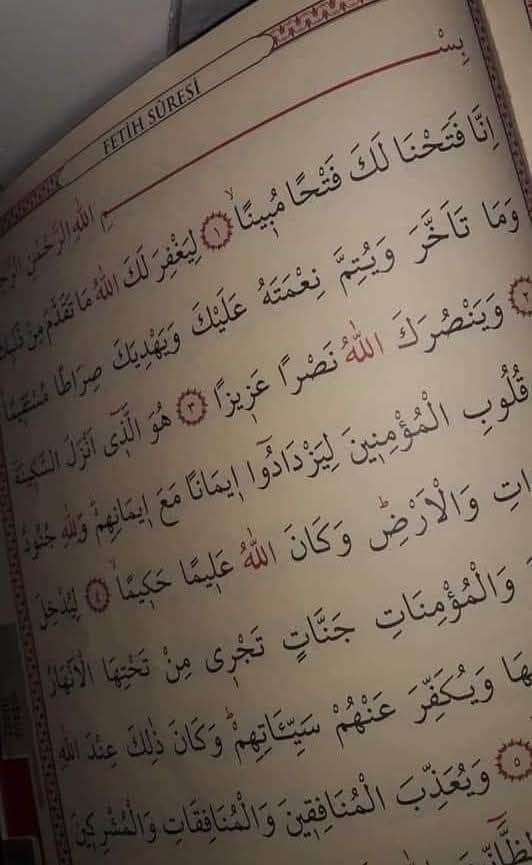 FETİH SÛRESİ
بِسْمِ اللّٰهِ الرَّحْمٰنِ
اِنَّا فَتَحْنَا لَكَ فَتْحًا مُبٖينًاۙ ﴿١﴾ لِيَغْفِرَ لَكَ اللّٰهُ مَا تَقَدَّمَ مِنْ
وَمَا تَاَخَّرَ وَيُتِمَّ نِعْمَتَهُ عَلَيْكَ وَيَهْدِيَكَ صِرَاطًا مُسْتَقٖيمًا
﴿٢﴾ وَيَنْصُرَكَ اللّٰهُ نَصْرًا عَزٖيزًا ﴿٣﴾ هُوَ الَّذٖٓى اَنْزَلَ السَّكٖينَةَ
قُلُوبِ الْمُؤْمِنٖينَ لِيَزْدَادُٓوا اٖيمَانًا مَعَ اٖيمَانِهِمْؕ وَلِلّٰهِ جُنُودُ
وَالْاَرْضِؕ وَكَانَ اللّٰهُ عَلٖيمًا حَكٖيمًاۙ ﴿٤﴾ لِيُدْخِلَ
وَالْمُؤْمِنَاتِ جَنَّاتٍ تَجْرٖى مِنْ تَحْتِهَا الْاَنْهَارُ
وَيُكَفِّرَ عَنْهُمْ سَيِّـَٔاتِهِمْؕ وَكَانَ ذٰلِكَ عِنْدَ اللّٰهِ
﴿٥﴾ وَيُعَذِّبَ الْمُنَافِقٖينَ وَالْمُنَافِقَاتِ وَالْمُشْرِكٖينَ